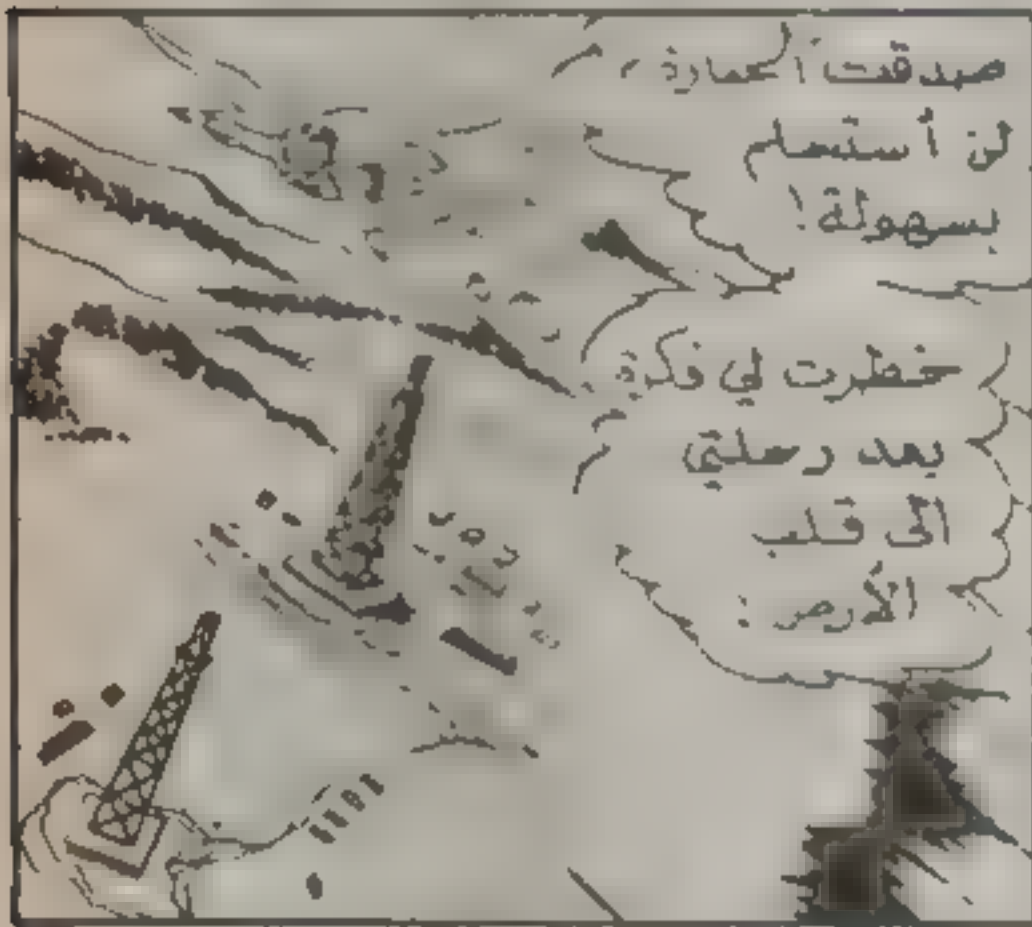 صدقت الصمارة
لن أستسلم
بسهولة!
خطرت لي فكرة
بعد رحلتي
الى قلب
الأرض: